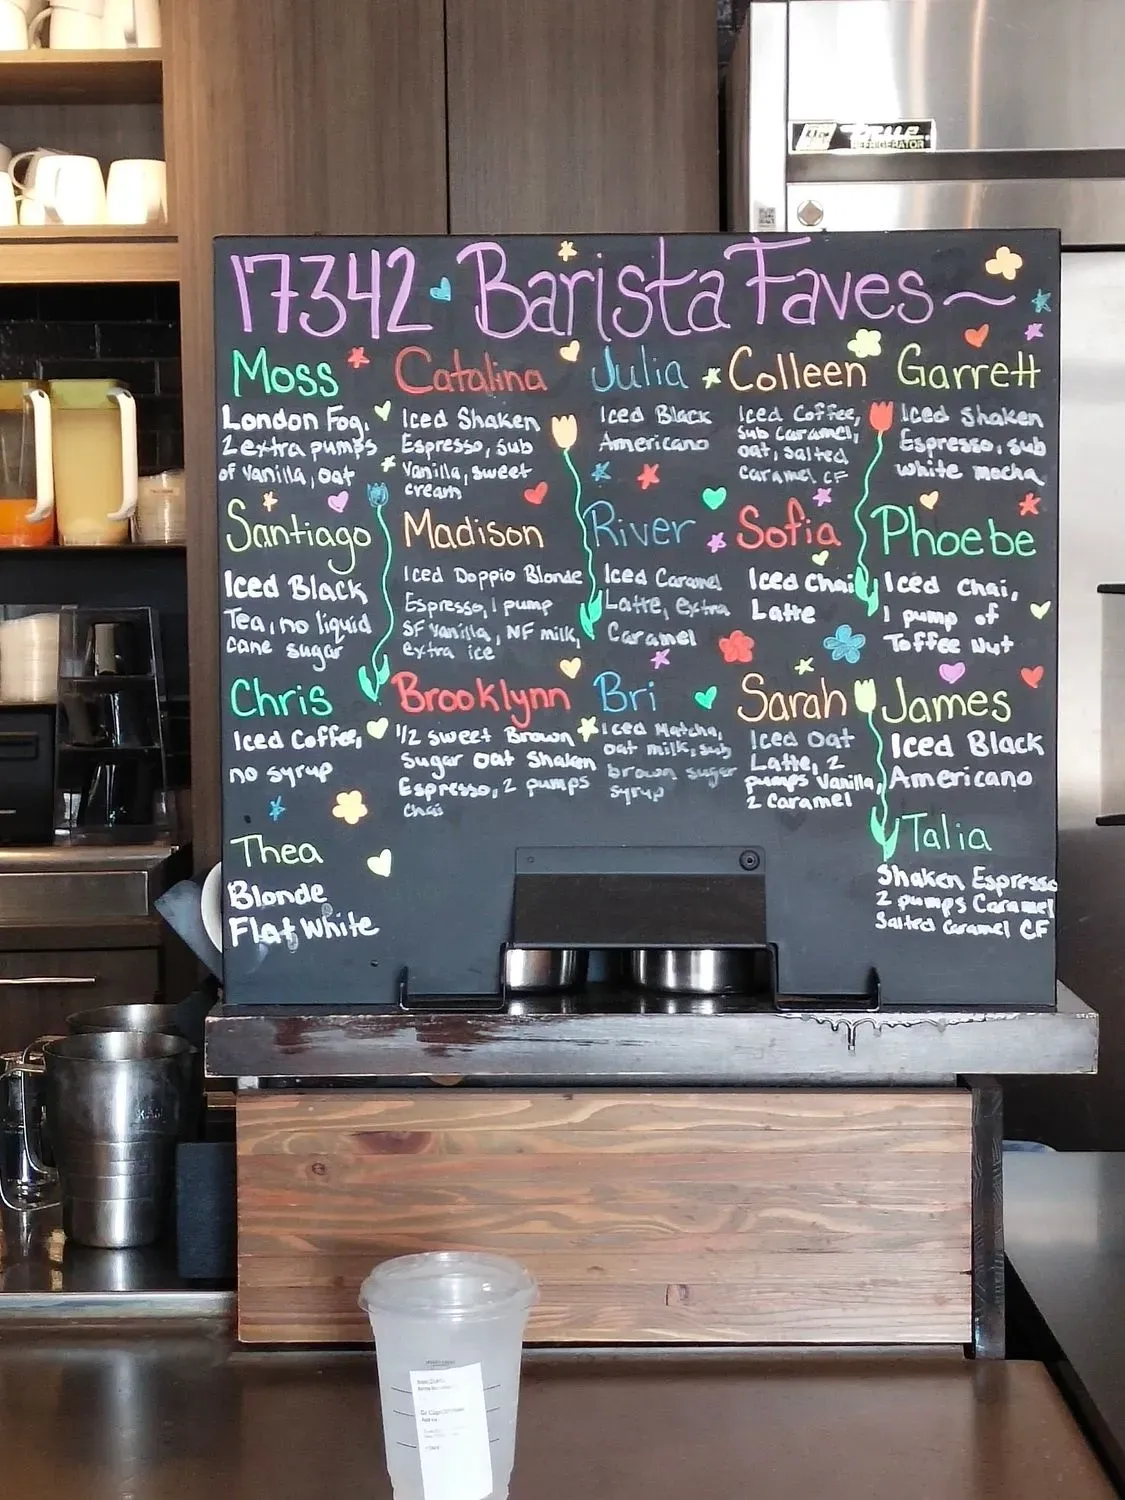 True
REFRIGERATOR
17342 Barista Faves~
Moss
London Fog,
2 extra pumps
of vanilla, oat
Catalina
Iced Shaken
Espresso, sub
vanilla, sweet
cream
Julia
Iced Black
Americano
Colleen
Iced Coffee,
sub caramel,
oat, salted
caramel CF
Garrett
Iced Shaken
Espresso, sub
white mocha
Santiago
Iced Black
Tea, no liquid
cane sugar
Madison
Iced Doppio Blonde
Espresso, 1 pump
SF vanilla, NF milk,
extra ice
River
Iced Caramel
Latte, extra
Caramel
Sofia
Iced Chai
Latte
Phoebe
Iced Chai,
1 pump of
Toffee Nut
Chris
Iced Coffee,
no syrup
Brooklynn
1/2 sweet Brown
Sugar Oat Shaken
Espresso, 2 pumps
Chai
Bri
Iced Matcha,
oat milk, sub
brown sugar
syrup
Sarah
Iced Oat
Latte, 2
pumps Vanilla,
2 Caramel
James
Iced Black
Americano
Thea
Blonde
Flat White
Talia
Shaken Espresso
2 pumps Caramel
Salted Caramel CF